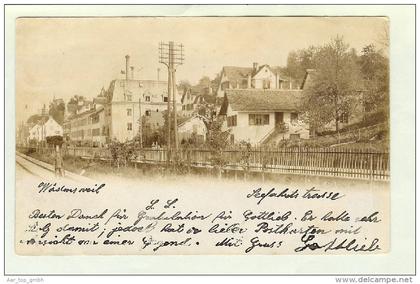 Wädensweil Seefahrtstrasse
L. L.
Besten Dank für Gratulation für Gottlieb. Er hatte sehr
Fr. damit; jedoch hat er lieber Postkarten mit
Ansicht von einer Gegend. Mit Gruss Gottlieb
top_gmbh
http://www.delcampe.net